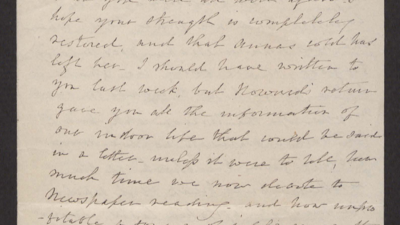 hope your strength is completely
restored, and that Anna's cold has
left her. I should have written to
you last week, but Howard's return
gave you all the information of
our indoor life that could be said
in a letter unless it were to tell, how
much time we now devote to
Newspaper reading, and how unpro
-fitable